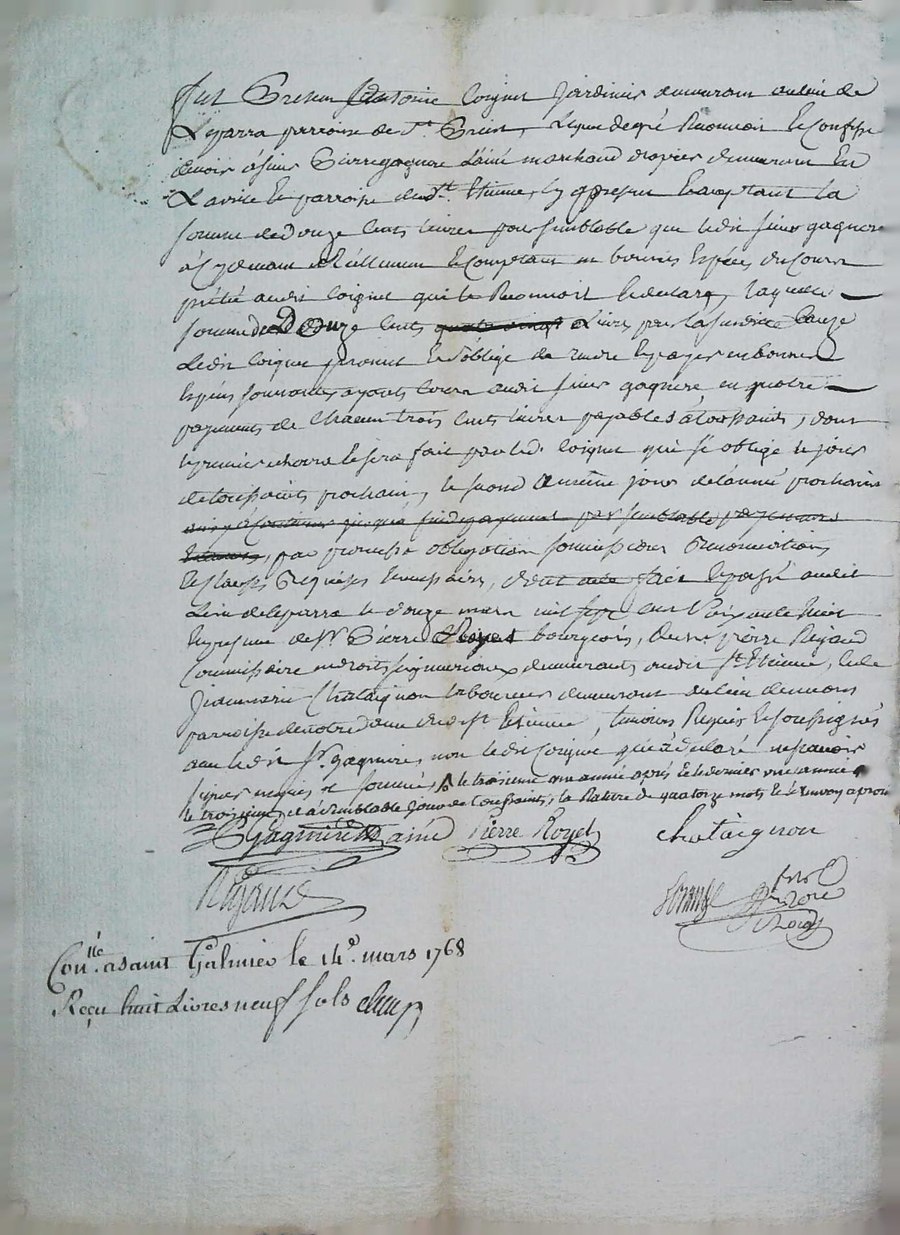 fut Present Antoine Coignet jardinier demeurant au lieu de
Leyparra parroisse de St Priest, Lequel de gré Reconnoit et Confesse
devoir à sieur Pierre gagnere L'ainé marchand drapier demeurant en
La ville et parroisse de St. Etienne, icy present et acceptant la
somme de douze Cents Livres pour semblable que ledit sieur gagnere
a Cy devant réellement et Comptant en bonnes Espéces du Cours
prêté audit Coignet qui le Reconnoit et declare, laquelle
somme de Douze Cents Livres pour la susditte Cauze
Ledit Coignet promet et s'oblige de rendre et payer en bonnes
Espéces sonnantes ayants Cours audit sieur gagnere, en quatre
payements de Chacun trois Cents Livres payables à toussaints, dont
le premier se fera fait par led. Coignet qui s'y oblige le jour
de toussaints prochain, le second à même jour de l'année prochaine
par promesse obligation soumissions Renonciations
et Clauses Requises et necessaires, fait et passé audit
Lieu de Leyparra le douze mars mil sept cent soixante huit
en presence de Sr Pierre Royet bourgeois, de me pierre Rejaud
Commissaire en droits seigneuriaux demeurants audit St Etienne, et de
Chataignon Laboureur demeurant au lieu de
parroisse de notre dame dudit St Etienne, temoins Requis et soussignés
avec le dit Sr. gagniere, non le dit Coignet qui a declaré ne sçavoir
signer enquis et sommé, le troisieme une année après et le dernier une année
le troisieme, et à semblable jour de Toussaints, la Rature de quatorze mots et le Renvoy aprouvé
Gagniere ainé Pierre Royet chataignon
Rejaud
Con.lle a saint Galmier le 14e. mars 1768
Reçu huit Livres neuf sols